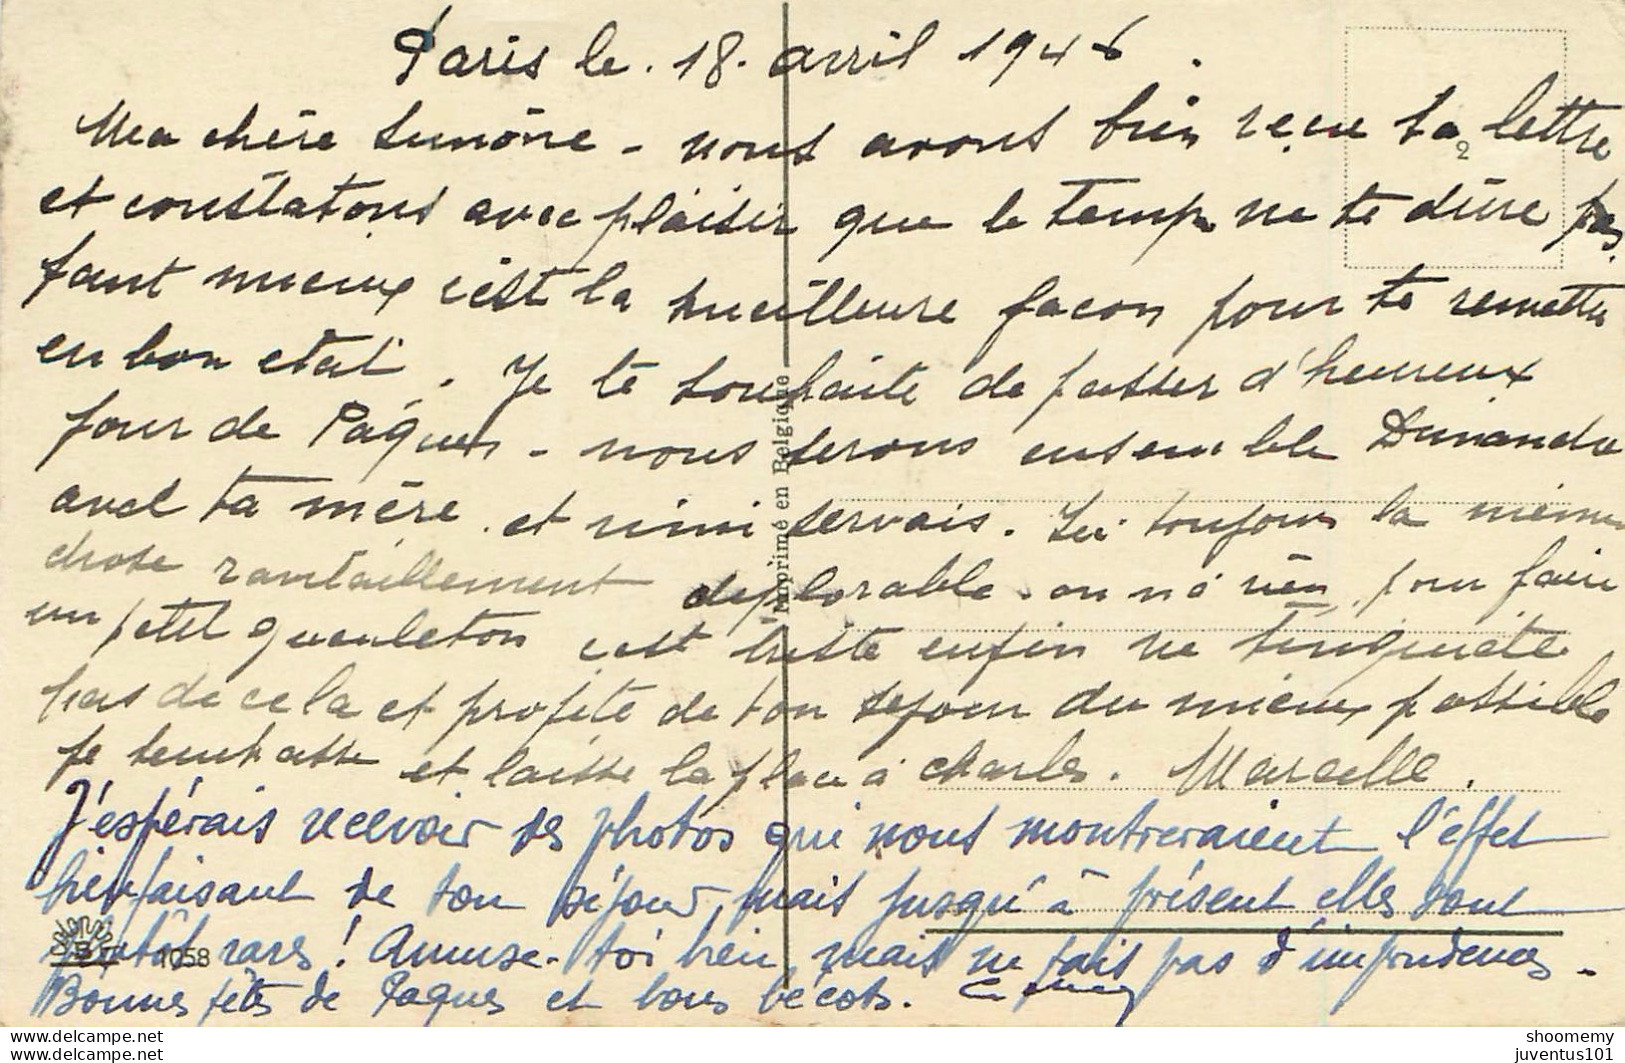 Paris le. 18. avril 1946.
Ma chère Simône - nous avons bien reçue ta lettre
et constatons avec plaisir que le temps ne te dûre pas
tant mieux c'est la meilleure façon pour te remettre
en bon etat. Je te souhaite de passer d'heureux
jour de Pâques - nous serons ensemble Dimanche
avec ta mère. et mimi servais. Ici toujours la même
chose ravitaillement deplorable. on n'a rien pour faire
un petit gueuleton c'est triste enfin ne t'inquiète
pas de cela et profite de ton sejour du mieux possible
je t'embrasse et laisse la place à charles. Marcelle.
J'espérais recevoir des photos qui nous montreraient l'effet
bienfaisant de ton séjour, mais jusqu'à présent elles sont
plutôt rares ! Amuse-toi bien, mais ne fais pas d'imprudences.
Bonnes fêtes de Pâques et bons bécots.
Imprimé en Belgique
2
1058
shoomemy
juventus101